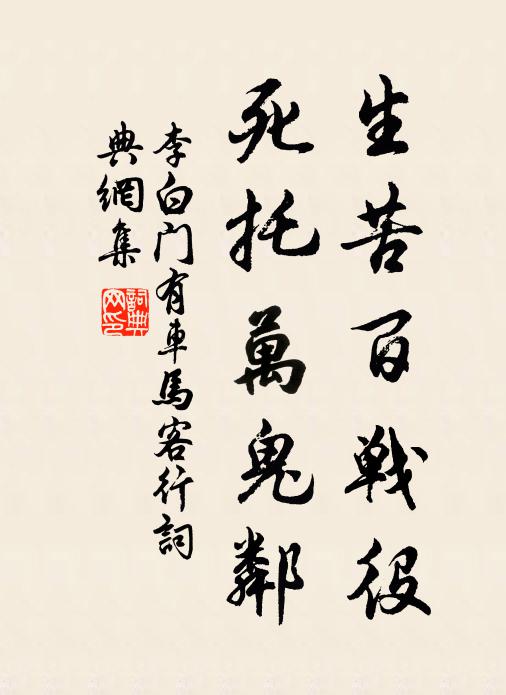 生苦百戦役
死托萬鬼鄰
李白門有車馬客行詞
典網集
詞典
网印